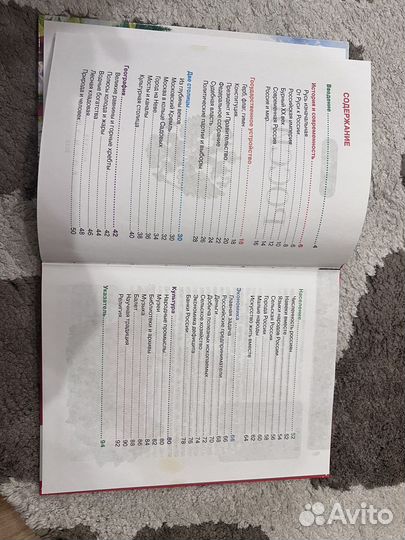 СОДЕРЖАНИЕ
Введение 4
История и современность 6
Русь изначальная 6
От Руси к России 8
Российская империя 10
Бурный XX век 12
Современная Россия 14
Россия и мир 16
Государственное устройство 18
Герб, флаг, гимн 18
Конституция 20
Президент и Правительство 22
Федеральное собрание 24
Судебная власть 26
Политические партии и выборы 28
Две столицы 30
Из глубины веков 30
Московский Кремль 32
Москва в кольце Садовых 34
Город на Неве 36
Мосты и каналы 38
Культурная столица 40
География 42
Великие равнины и горные хребты 42
Полюсы холода и жары 44
Водные богатства 46
Лесная кладовая 48
Природа и человек 50
Население 52
Численность россиян 52
Навеки вместе 54
Языки народов России 56
Сельская Россия 58
Города России 60
Малые народы 62
Искусство жить вместе 64
Экономика 66
Главная задача 66
Российские предприниматели 68
Деньги 70
Добыча полезных ископаемых 72
Сельское хозяйство 74
Экономика дефицита 76
Банки России 78
Культура 80
Народные промыслы 80
Музеи 82
Библиотеки и архивы 84
Музыка 86
Балет 88
Научная традиция 90
Религия 92
Указатель 94
Avito